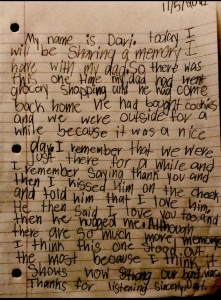 11/5/
My name is Dari. today I
will be Sharing a memory I
have with my dad. So there was
this one time my dad had went
grocery shopping and he had come
back home he had bought cookies
and we were outside for a
while because it was a nice
day. I remember that we were
just there for a while and
I remember saying thank you and
then I kissed him on the cheek
and told him that I love him,
he then said I love you too and
then we hugged me. Although
there are so much more memories
I think this one stood out
the most because I think it
Shows how strong our bond was
Thanks for listening sincerly Dari.